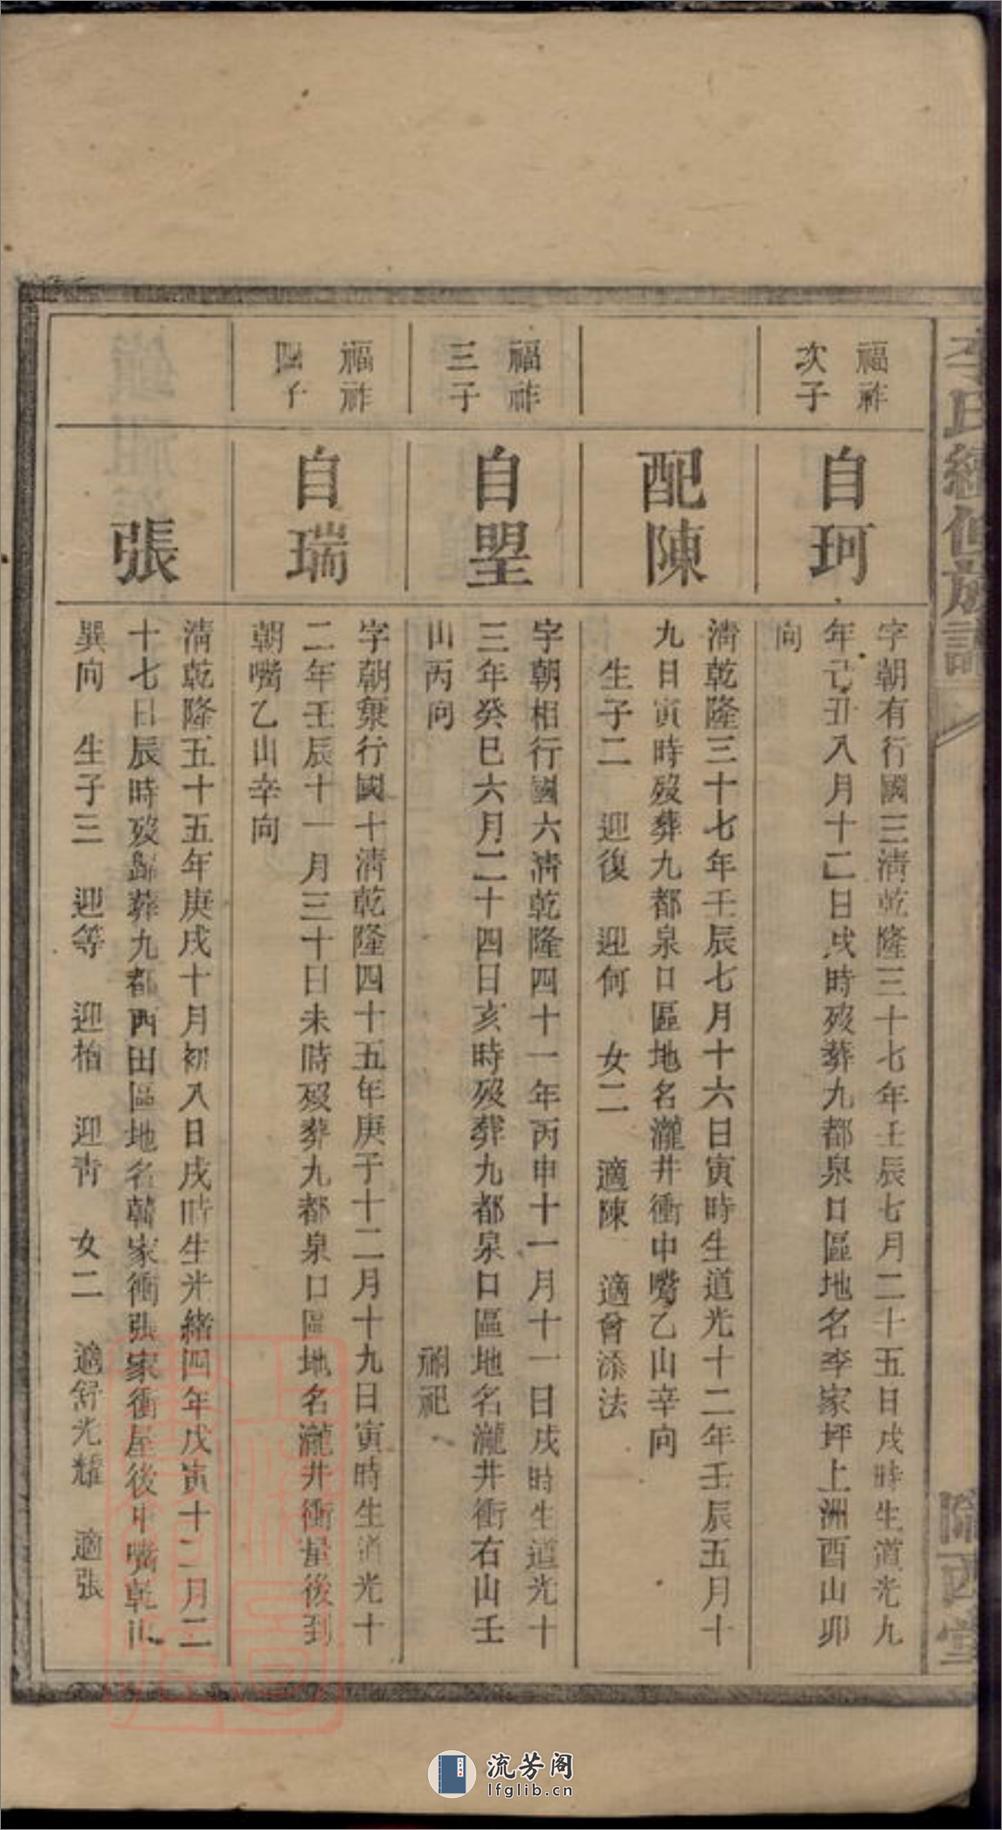 李氏續修族譜
隴西堂
福祚
次子
自珂
字朝有行國三清乾隆三十七年壬辰七月二十五日戌時生道光九
年己丑八月十二日戌時歿葬九都泉口區地名李家坪上洲酉山卯
向
配陳
清乾隆三十七年壬辰七月十六日寅時生道光十二年壬辰五月十
九日寅時歿葬九都泉口區地名瀧井衝中嘴乙山辛向
生子二 迎復 迎何 女二 適陳 適曾添法
福祚
三子
自堊
字朝相行國六清乾隆四十一年丙申十一月十一日戌時生道光十
三年癸巳六月二十四日亥時歿葬九都泉口區地名瀧井衝右山壬
山丙向 祔祀
福祚
四子
自瑞
字朝秉行國十清乾隆四十五年庚子十二月十九日寅時生道光十
二年壬辰十一月三十日未時歿葬九都泉口區地名瀧井衝屋後到
朝嘴乙山辛向
張
清乾隆五十五年庚戌十月初八日戌時生光緒四年戊寅十二月二
十七日辰時歿歸葬九都西田區地名韓家衝張家衝屋後中嘴乾山
巽向 生子三 迎等 迎柏 迎青 女二 適舒光耀 適張
流芳阁
lfglib.cn